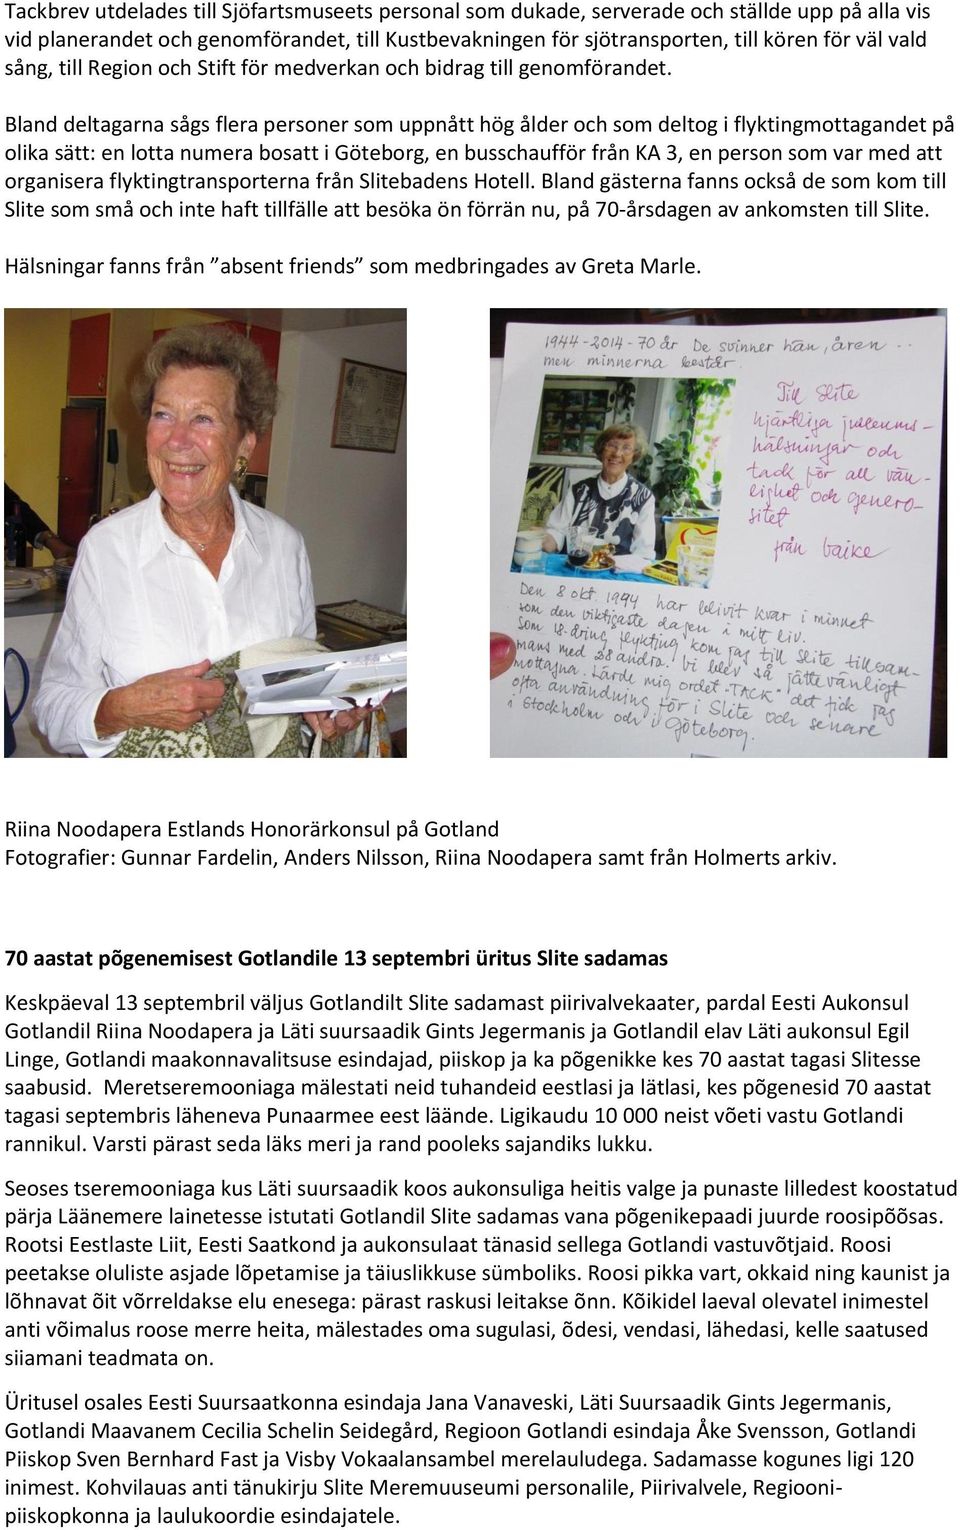 Tackbrev utdelades till Sjöfartsmuseets personal som dukade, serverade och ställde upp på alla vis
vid planerandet och genomförandet, till Kustbevakningen för sjötransporten, till kören för väl vald
sång, till Region och Stift för medverkan och bidrag till genomförandet.
Bland deltagarna sågs flera personer som uppnått hög ålder och som deltog i flyktingmottagandet på
olika sätt: en lotta numera bosatt i Göteborg, en busschaufför från KA 3, en person som var med att
organisera flyktingtransporterna från Slitebadens Hotell. Bland gästerna fanns också de som kom till
Slite som små och inte haft tillfälle att besöka ön förrän nu, på 70-årsdagen av ankomsten till Slite.
Hälsningar fanns från ”absent friends” som medbringades av Greta Marle.
1944-2014-70 år De svinner hän, åren ..
men minnerna består.
Till Slite
hjärtliga jubileums-
hälsningar och
tack för all vän-
lighet och genero-
sitet
från baike
Den 8 okt. 1944 har blivit kvar i minnet
som den viktigaste dagen i mitt liv.
Som 18-åring flykting kom jag till Slite tillsam-
mans med 28 andra. Vi blev så jättevänligt
mottagna. Lärde mig ordet "TACK" det fick jag
ofta användning för i Slite och senare
i Stockholm och i Göteborg.
Riina Noodapera Estlands Honorärkonsul på Gotland
Fotografier: Gunnar Fardelin, Anders Nilsson, Riina Noodapera samt från Holmerts arkiv.
70 aastat põgenemisest Gotlandile 13 septembri üritus Slite sadamas
Keskpäeval 13 septembril väljus Gotlandilt Slite sadamast piirivalvekaater, pardal Eesti Aukonsul
Gotlandil Riina Noodapera ja Läti suursaadik Gints Jegermanis ja Gotlandil elav Läti aukonsul Egil
Linge, Gotlandi maakonnavalitsuse esindajad, piiskop ja ka põgenikke kes 70 aastat tagasi Slitesse
saabusid. Meretseremooniaga mälestati neid tuhandeid eestlasi ja lätlasi, kes põgenesid 70 aastat
tagasi septembris läheneva Punaarmee eest läände. Ligikaudu 10 000 neist võeti vastu Gotlandi
rannikul. Varsti pärast seda läks meri ja rand pooleks sajandiks lukku.
Seoses tseremooniaga kus Läti suursaadik koos aukonsuliga heitis valge ja punaste lilledest koostatud
pärja Läänemere lainetesse istutati Gotlandil Slite sadamas vana põgenikepaadi juurde roosipõõsas.
Rootsi Eestlaste Liit, Eesti Saatkond ja aukonsulaat tänasid sellega Gotlandi vastuvõtjaid. Roosi
peetakse oluliste asjade lõpetamise ja täiuslikkuse sümboliks. Roosi pikka vart, okkaid ning kaunist ja
lõhnavat õit võrreldakse elu enesega: pärast raskusi leitakse õnn. Kõikidel laeval olevatel inimestel
anti võimalus roose merre heita, mälestades oma sugulasi, õdesi, vendasi, lähedasi, kelle saatused
siiamani teadmata on.
Üritusel osales Eesti Suursaatkonna esindaja Jana Vanaveski, Läti Suursaadik Gints Jegermanis,
Gotlandi Maavanem Cecilia Schelin Seidegård, Regioon Gotlandi esindaja Åke Svensson, Gotlandi
Piiskop Sven Bernhard Fast ja Visby Vokaalansambel merelauludega. Sadamasse kogunes ligi 120
inimest. Kohvilauas anti tänukirju Slite Meremuuseumi personalile, Piirivalvele, Regiooni-
piiskopkonna ja laulukoordie esindajatele.